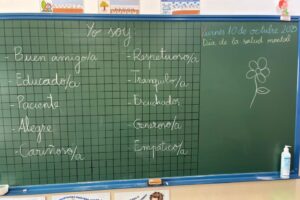 Yo soy
- Buen amigo/a
- Educado/a
- Paciente
- Alegre
- Cariñoso/a
- Respetuoso/a
- Tranquilo/a
- Escuchador
- Generoso/a
- Empático/a
Viernes 10 de octubre 2025
Día de la salud mental